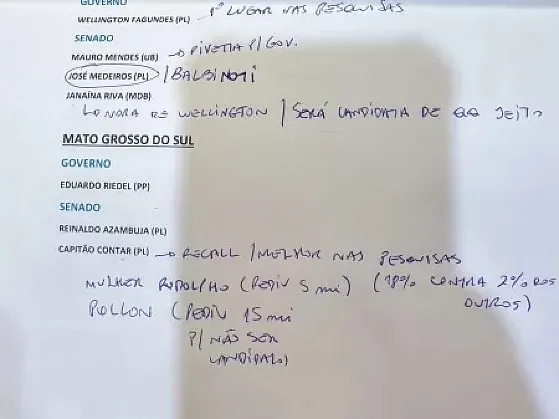 GOVERNO
WELLINGTON FAGUNDES (PL) → 1º LUGAR NAS PESQUISAS
SENADO
MAURO MENDES (UB) → PIVETTA P/ GOV.
JOSÉ MEDEIROS (PL) / BALBINOTI
JANAÍNA RIVA (MDB)
NORA DE WELLINGTON / SERÁ CANDIDATA DE QQ JEITO
MATO GROSSO DO SUL
GOVERNO
EDUARDO RIEDEL (PP)
SENADO
REINALDO AZAMBUJA (PL)
CAPITÃO CONTAR (PL) → RECALL / MELHOR NAS PESQUISAS
MULHER RODOLFHO (PEDIU 5 mi) (18% CONTRA 2% DOS OUTROS)
POLLON (PEDIU 15 mi
P/ NÃO SER
CANDIDATO)